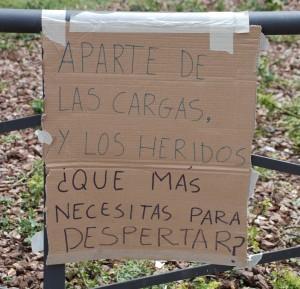 APARTE DE
LAS CARGAS,
Y LOS HERIDOS
¿QUE MÁS
NECESITAS PARA
DESPERTAR?